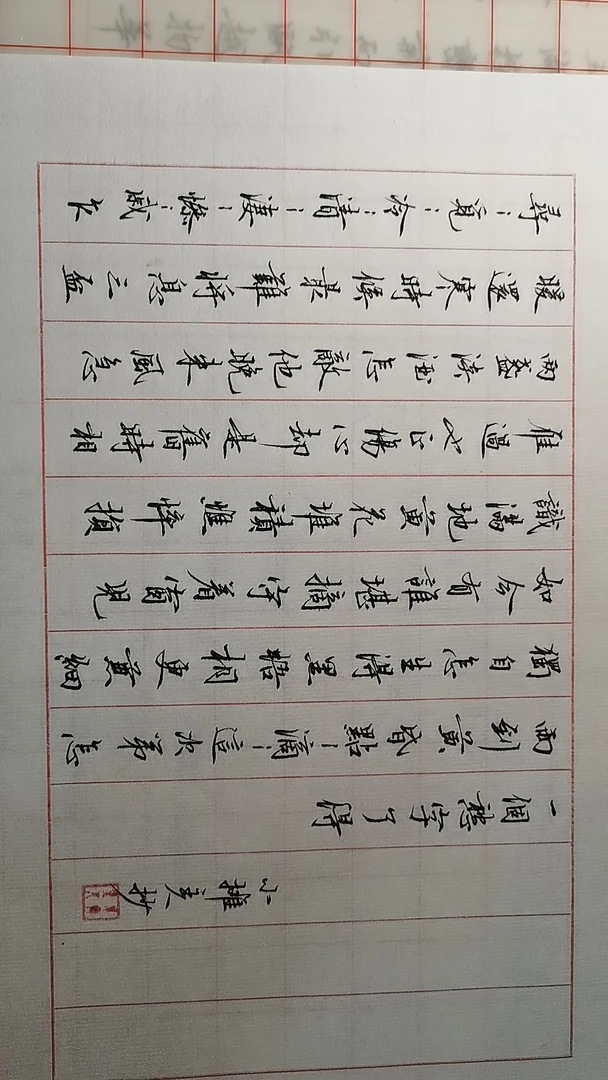 尋：覓：冷：清：淒：慘：戚：乍
暖還寒時候最難將息三盃
兩盞淡酒怎敵他晚來風急
雁過也正傷心却是舊時相
識滿地黃花堆積憔悴損
如今有誰堪摘守着窗兒
獨自怎生得黑梧桐更兼細
雨到黃昏點：滴：這次第怎
一個愁字了得
小抄